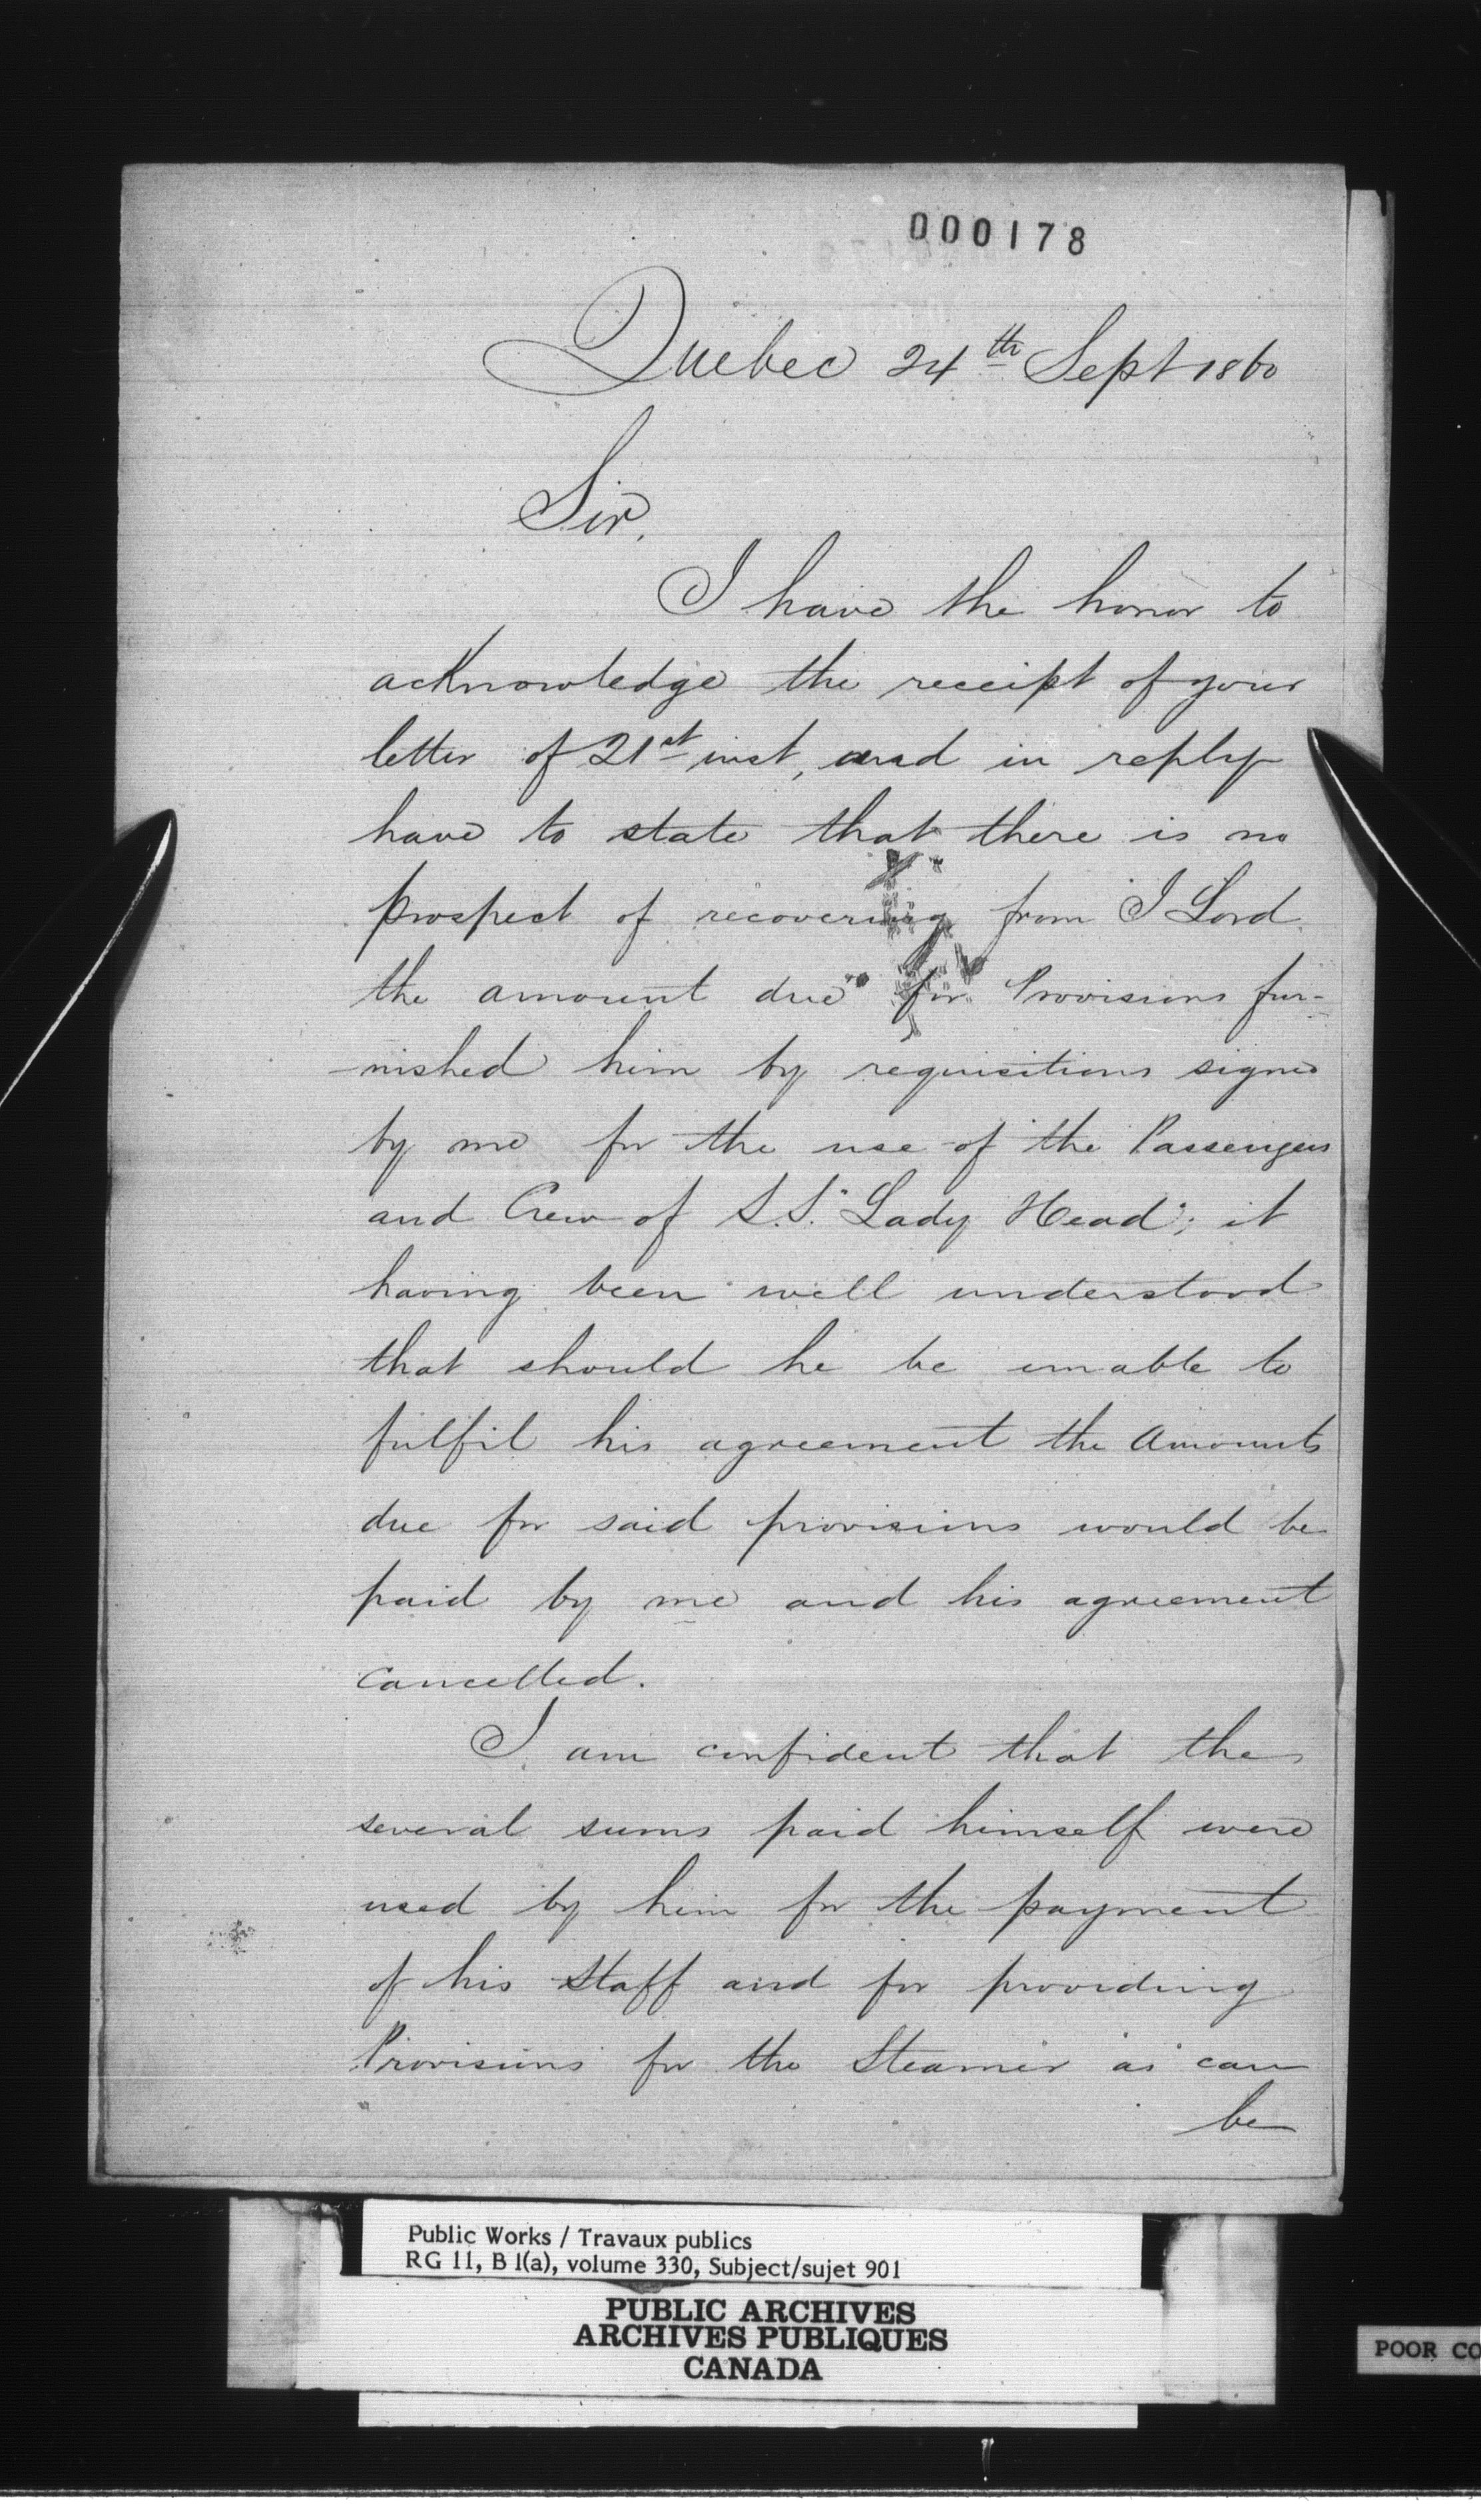 000178
Quebec 24th Sept 1860
Sir,
I have the honor to
acknowledge the receipt of your
letter of 21st inst, and in reply
have to state that there is no
prospect of recovering from I Lord
the amount due for Provisions fur-
nished him by requisitions signed
by me for the use of the Passengers
and Crew of S.S. "Lady Head"; it
having been well understood
that should he be unable to
fulfil his agreement the Amounts
due for said provisions would be
paid by me and his agreement
cancelled.
I am confident that the
several sums paid himself were
used by him for the payment
of his Staff and for providing
Provisions for the Steamer as can
be
Public Works / Travaux publics
RG 11, B 1(a), volume 330, Subject/sujet 901
PUBLIC ARCHIVES
ARCHIVES PUBLIQUES
CANADA
POOR CO